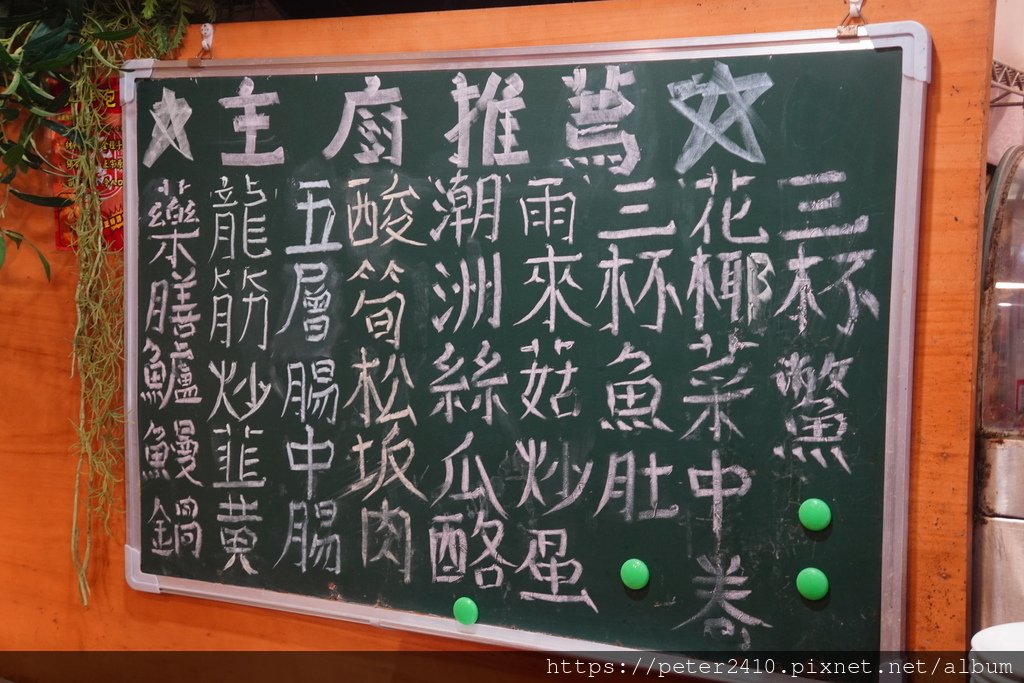 ☆主廚推薦☆
三杯鱉
花椰菜中卷
三杯魚肚
雨來菇炒蛋
潮洲絲瓜酪
酸筍松坂肉
五層腸中腸
龍筋炒韮黃
藥膳鱸鰻鍋
https://peter2410.pixnet.net/album